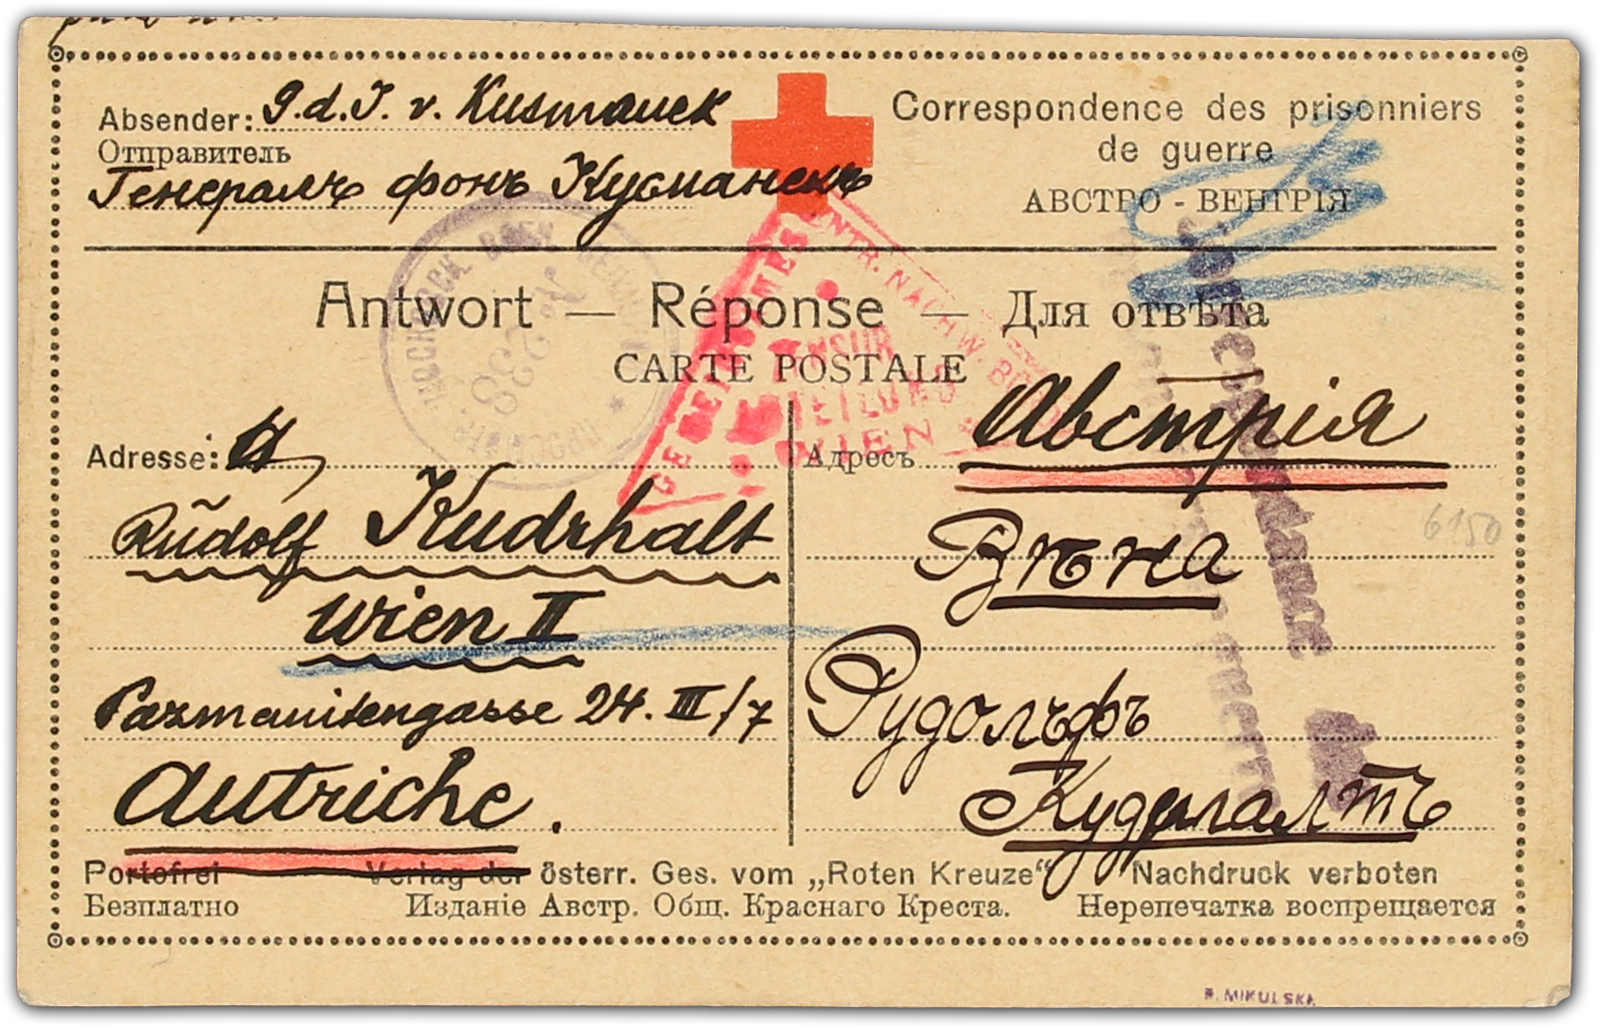 Absender: G.d.I. v. Kusmanek
Отправитель
Генералъ фонъ Кусманекъ
Correspondence des prisonniers
de guerre
АВСТРО - ВЕНГРІЯ
Antwort — Réponse — Для отвѣта
CARTE POSTALE
Adresse:
Rudolf Kudrhalt
Wien II
Pazmanitengasse 24. III/7
Autriche.
Адресъ Австрія
Вѣна
Рудольфъ
Кудргалтъ
ZENSUR
WIEN
Portofrei Verlag der österr. Ges. vom „Roten Kreuze“ Nachdruck verboten
Безплатно Изданіе Австр. Общ. Краснаго Креста. Нерепечатка воспрещается
6150
R. MIKULSKI